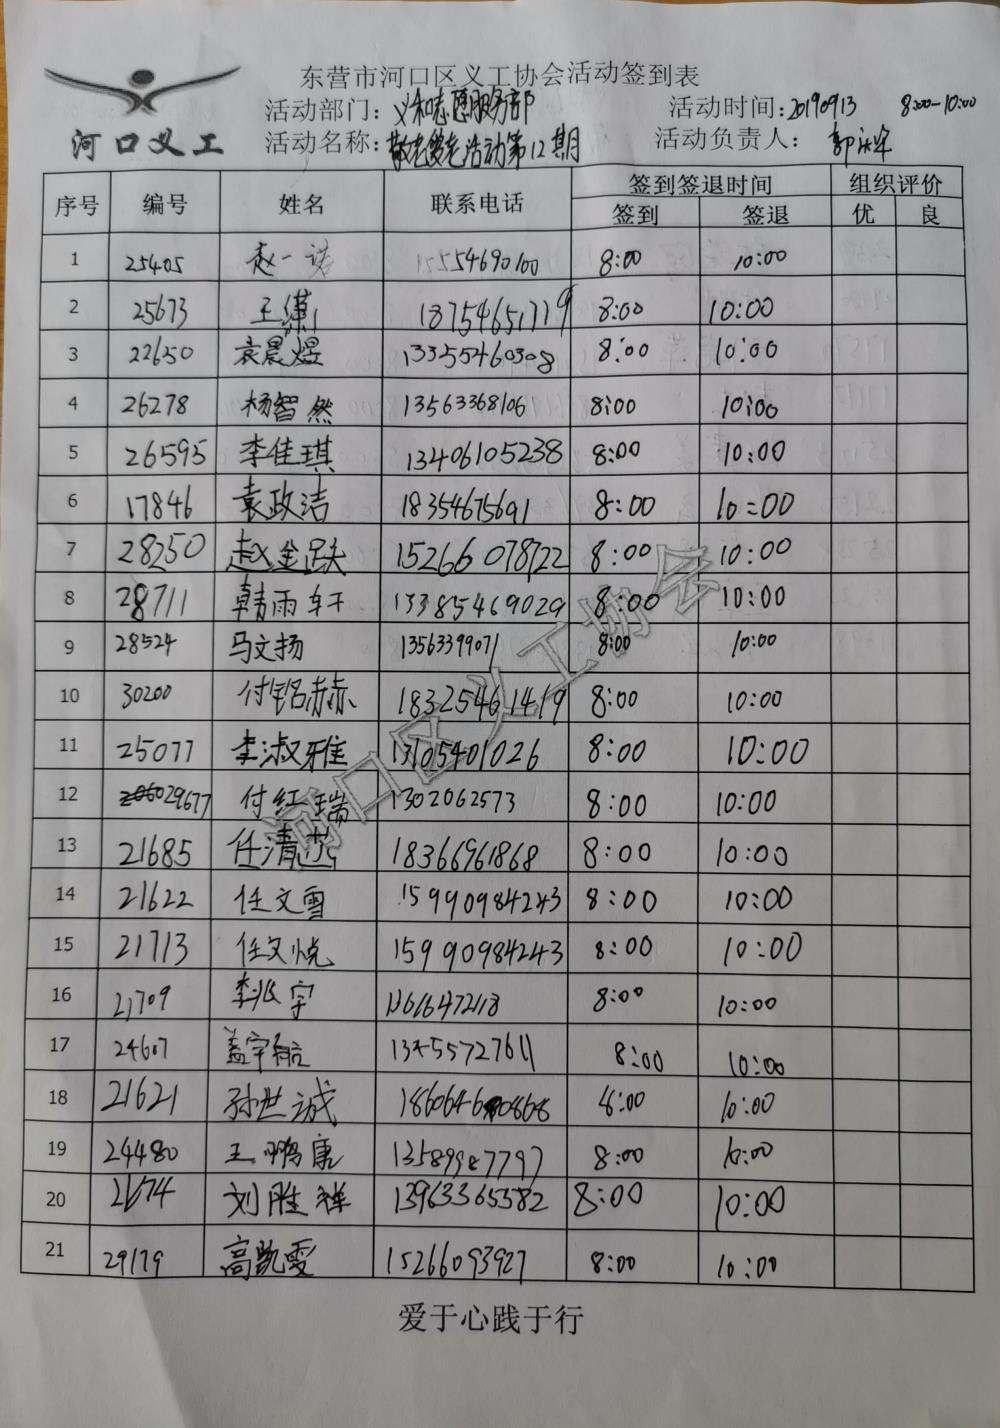 东营市河口区义工协会活动签到表
河口义工
活动部门：义和志愿服务部 活动时间：20190913 8:00-10:00
活动名称：敬老爱老活动第12期 活动负责人：
序号 编号 姓名 联系电话 签到签退时间 组织评价
签到 签退 优 良
1 25405 赵一诺 15554690100 8:00 10:00
2 25673 王潇 18754651779 8:00 10:00
3 22650 袁晨煜 13355460308 8:00 10:00
4 26278 杨智然 13563368106 8:00 10:00
5 26595 李佳琪 13406105238 8:00 10:00
6 17846 袁政洁 18354675691 8:00 10:00
7 28250 赵金跃 15266078722 8:00 10:00
8 28711 韩雨轩 13385469029 8:00 10:00
9 28524 马文扬 13563399071 8:00 10:00
10 30200 付铭赫 18325461419 8:00 10:00
11 25077 李淑雅 13105401026 8:00 10:00
12 29677 付红瑞 1302062573 8:00 10:00
13 21685 任清 18366961868 8:00 10:00
14 21622 任文雪 15990984243 8:00 10:00
15 21713 任文悦 15990984243 8:00 10:00
16 21709 8:00 10:00
17 24607 盖宇航 13455727611 8:00 10:00
18 21621 孙世诚 8:00 10:00
19 24480 王鹏康 8:00 10:00
20 刘胜祥 13963365582 8:00 10:00
21 29179 高凯雯 15266093927 8:00 10:00
河口区义工协会
爱于心践于行